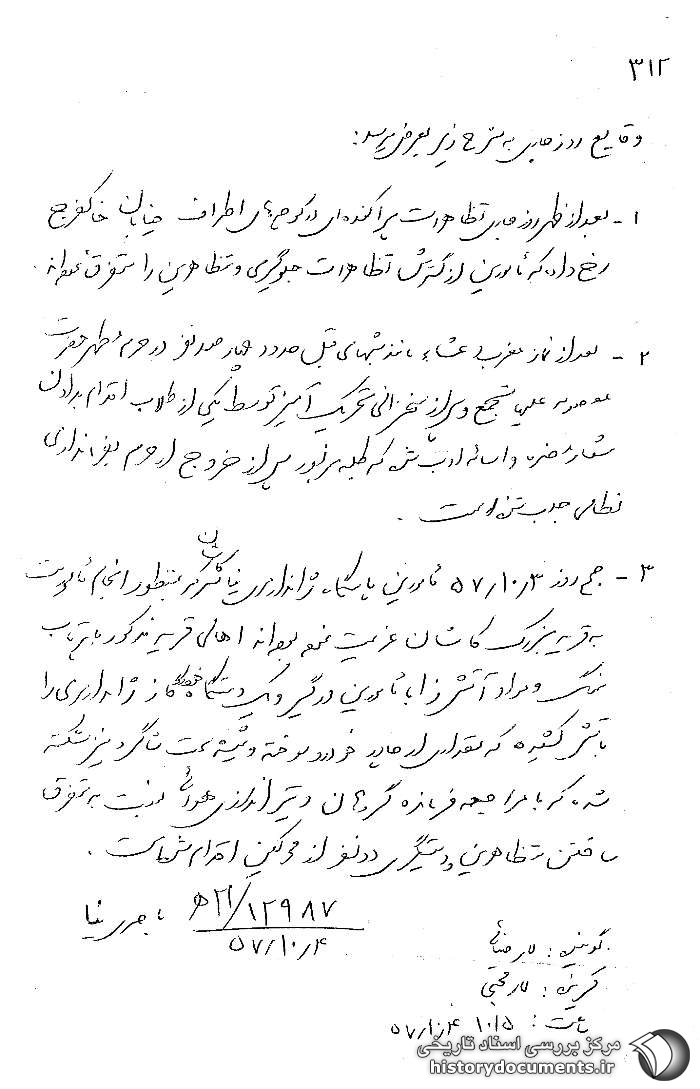 ۳۱۲
وقایع روز جاری به شرح زیر بعرض میرسد:
۱- بعد از ظهر روز جاری تظاهرات پراکنده‌ای در کوچه‌های اطراف خیابان خاکفرج
رخ داد که مأمورین از گسترش تظاهرات جلوگیری و متظاهرین را متفرق نموده‌اند.
۲- بعد از نماز مغرب و عشاء مانند شبهای قبل حدود چهار صد نفر در حرم مطهر حضرت
معصومه علیها تجمع و پس از سخنرانی تحریک آمیز توسط یکی از طلاب اقدام به دادن
شعار مضره و اسائه ادب شد که طلبه مزبور پس از خروج از حرم بفرمانداری
نظامی جلب شده است.
۳- صبح روز ۵۷/۱۰/۳ مأمورین پاسگاه ژاندارمری نیاسر کاشان بمنظور انجام مأموریت
به قریه بزرگ کاشان عزیمت نموده بودند اهالی قریه مذکور با پرتاب
سنگ و مواد آتش زا با مأمورین درگیر و یک دستگاه خودرو گاز ژاندارمری را
بآتش کشیده که مقداری از چادر خودرو سوخته و شیشه سمت شاگرد نیز شکسته
شده که با مراجعه فرمانده گروهان و تیراندازی هوائی نسبت به متفرق
ساختن متظاهرین و دستگیری دو نفر از محرکین اقدام شده است.
۲۱/۱۲۹۸۷ ه‍
۵۷/۱۰/۴
گوینده:
گیرنده:
ساعت: ۱۰/۵ ۵۷/۱۰/۴
مرکز بررسی اسناد تاریخی
historydocuments.ir